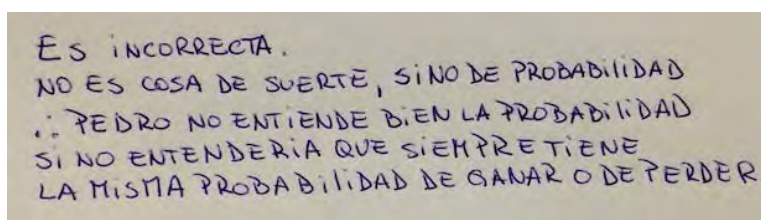 ES INCORRECTA.
NO ES COSA DE SUERTE, SINO DE PROBABILIDAD
∴ PEDRO NO ENTIENDE BIEN LA PROBABILIDAD
SI NO ENTENDERIA QUE SIEMPRE TIENE
LA MISMA PROBABILIDAD DE GANAR O DE PERDER